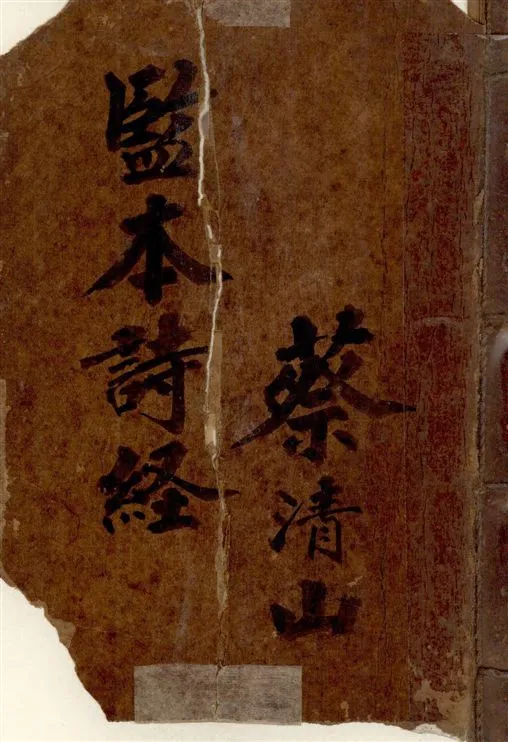 蔡清山
監本詩経